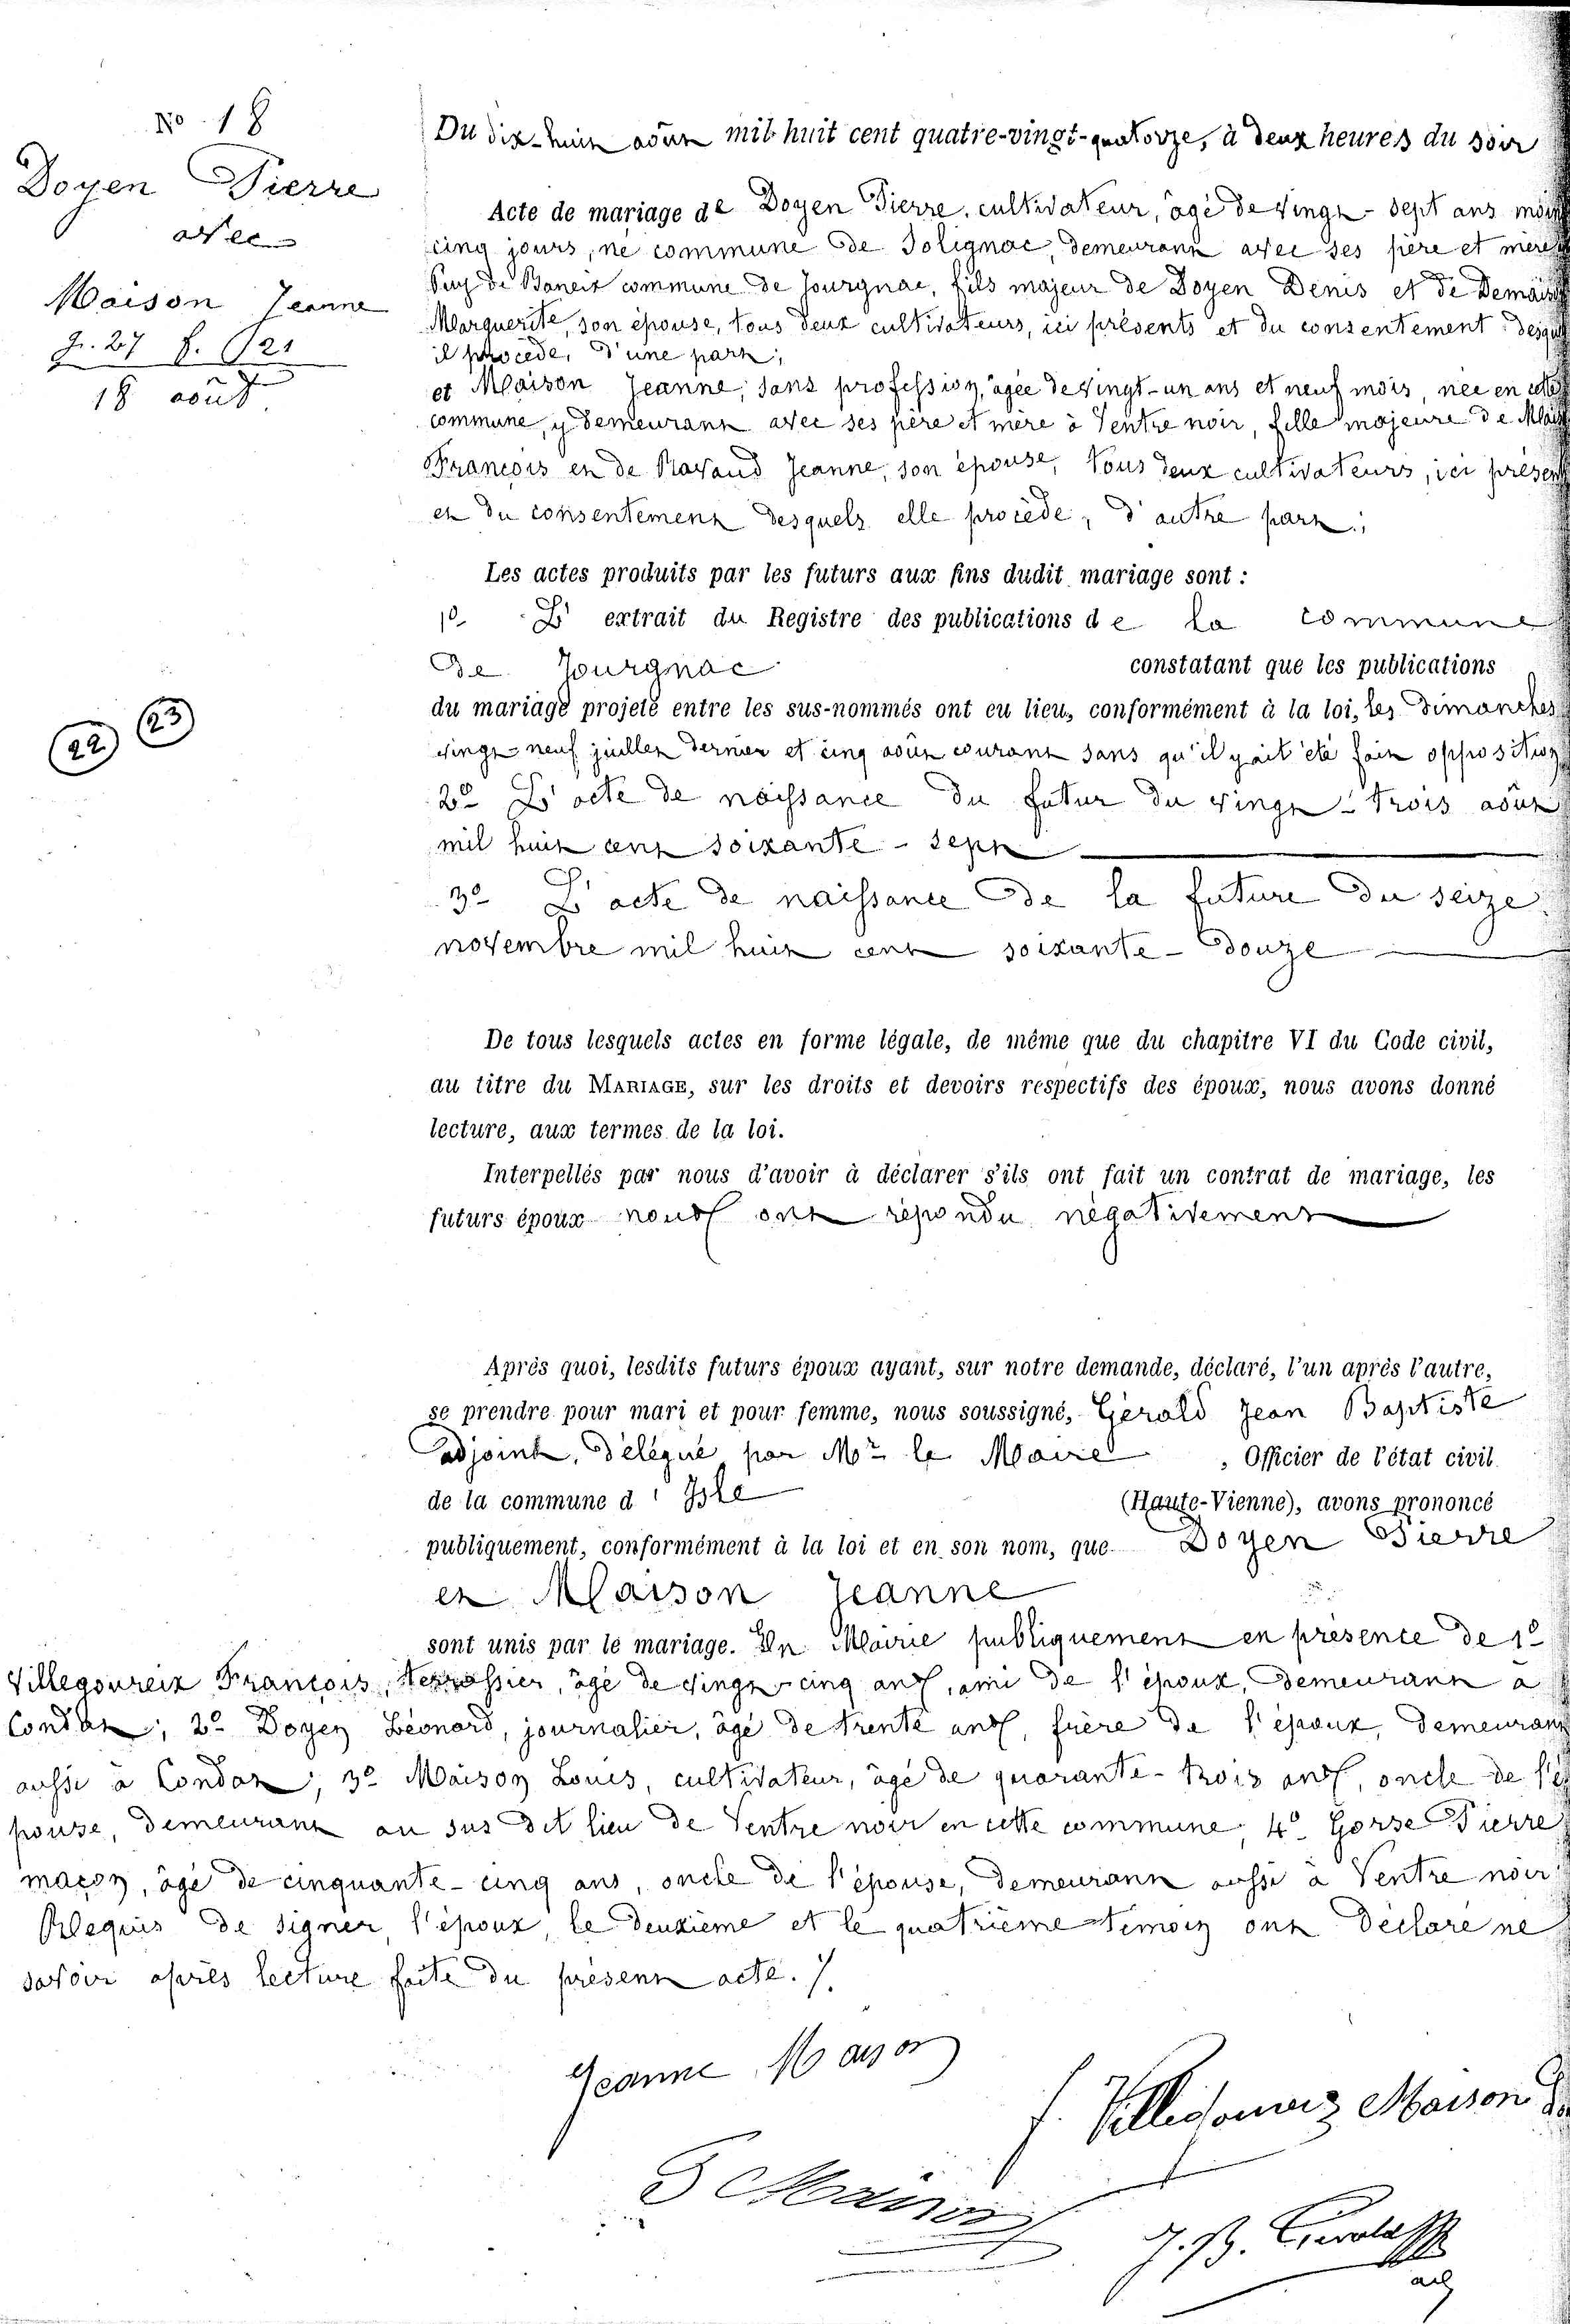 No 18
Doyen Pierre
avec
Maison Jeanne
g. 27 f. 21
18 août
22 23
Du dix-huit août mil huit cent quatre-vingt-quatorze, à deux heures du soir
Acte de mariage de Doyen Pierre, cultivateur, âgé de vingt-sept ans moins
cinq jours, né commune de Solignac, demeurant avec ses père et mère
Puy de Baneix commune de Jourgnac, fils majeur de Doyen Denis et de Demaison
Marguerite, son épouse, tous deux cultivateurs, ici présents et du consentement desquels
il procède, d'une part;
et Maison Jeanne, sans profession, âgée de vingt-un ans et neuf mois, née en cette
commune, y demeurant avec ses père et mère à Ventre noir, fille majeure de Maison
François et de Ravaud Jeanne, son épouse, tous deux cultivateurs, ici présents
et du consentement desquels elle procède, d'autre part;
Les actes produits par les futurs aux fins dudit mariage sont :
1o L' extrait du Registre des publications de la commune
de Jourgnac constatant que les publications
du mariage projeté entre les sus-nommés ont eu lieu, conformément à la loi, les dimanches
vingt-neuf juillet dernier et cinq août courant sans qu'il y ait été fait opposition
2o L'acte de naissance du futur du vingt-trois août
mil huit cent soixante-sept
3o L'acte de naissance de la future du seize
novembre mil huit cent soixante-douze
De tous lesquels actes en forme légale, de même que du chapitre VI du Code civil,
au titre du MARIAGE, sur les droits et devoirs respectifs des époux, nous avons donné
lecture, aux termes de la loi.
Interpellés par nous d'avoir à déclarer s'ils ont fait un contrat de mariage, les
futurs époux nous ont répondu négativement
Après quoi, lesdits futurs époux ayant, sur notre demande, déclaré, l'un après l'autre,
se prendre pour mari et pour femme, nous soussigné, Gérald Jean Baptiste
adjoint, délégué par Mr le Maire, Officier de l'état civil
de la commune d'Isle (Haute-Vienne), avons prononcé
publiquement, conformément à la loi et en son nom, que Doyen Pierre
et Maison Jeanne
sont unis par le mariage. En Mairie publiquement en présence de 1o
Villegoureix François, terrassier, âgé de vingt-cinq ans, ami de l'époux, demeurant à
Condat; 2o Doyen Léonard, journalier, âgé de trente ans, frère de l'époux, demeurant
aussi à Condat; 3o Maison Louis, cultivateur, âgé de quarante-trois ans, oncle de l'é
pouse, demeurant au sus dit lieu de Ventre noir en cette commune, 4o Gorse Pierre
maçon, âgé de cinquante-cinq ans, oncle de l'épouse, demeurant aussi à Ventre noir
Requis de signer, l'époux, le deuxième et le quatrième témoin ont déclaré ne
savoir après lecture faite du présent acte. /.
Jeanne Maison
f. Villegoureix Maison
Maison
J. B. Gerald
adj